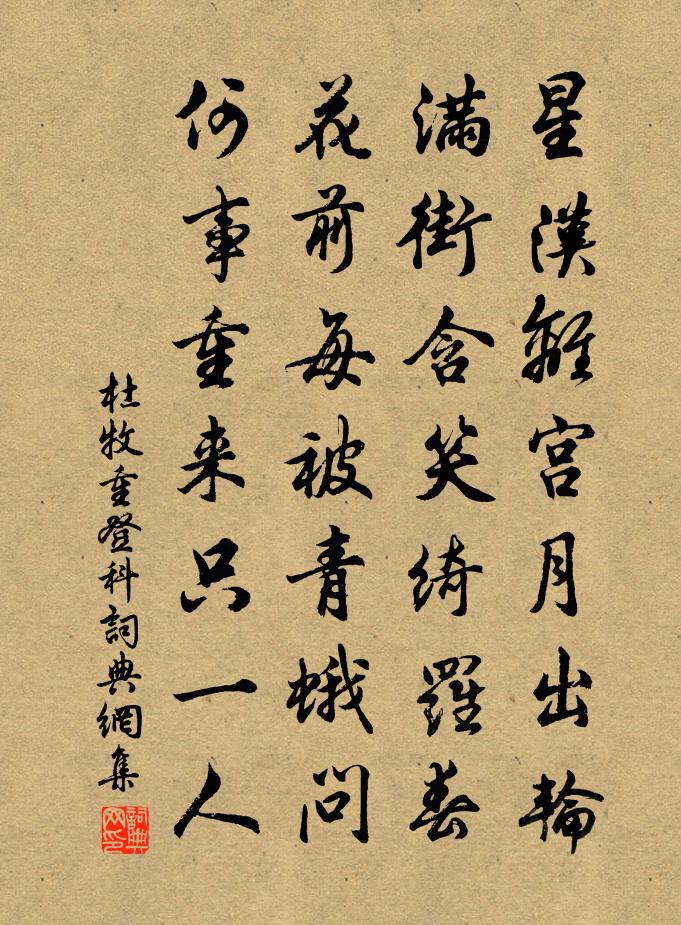 星漢離宮月出輪
滿街含笑綺羅春
花前每被青蛾問
何事重来只一人
杜牧重登科詞典網集
詞典网印